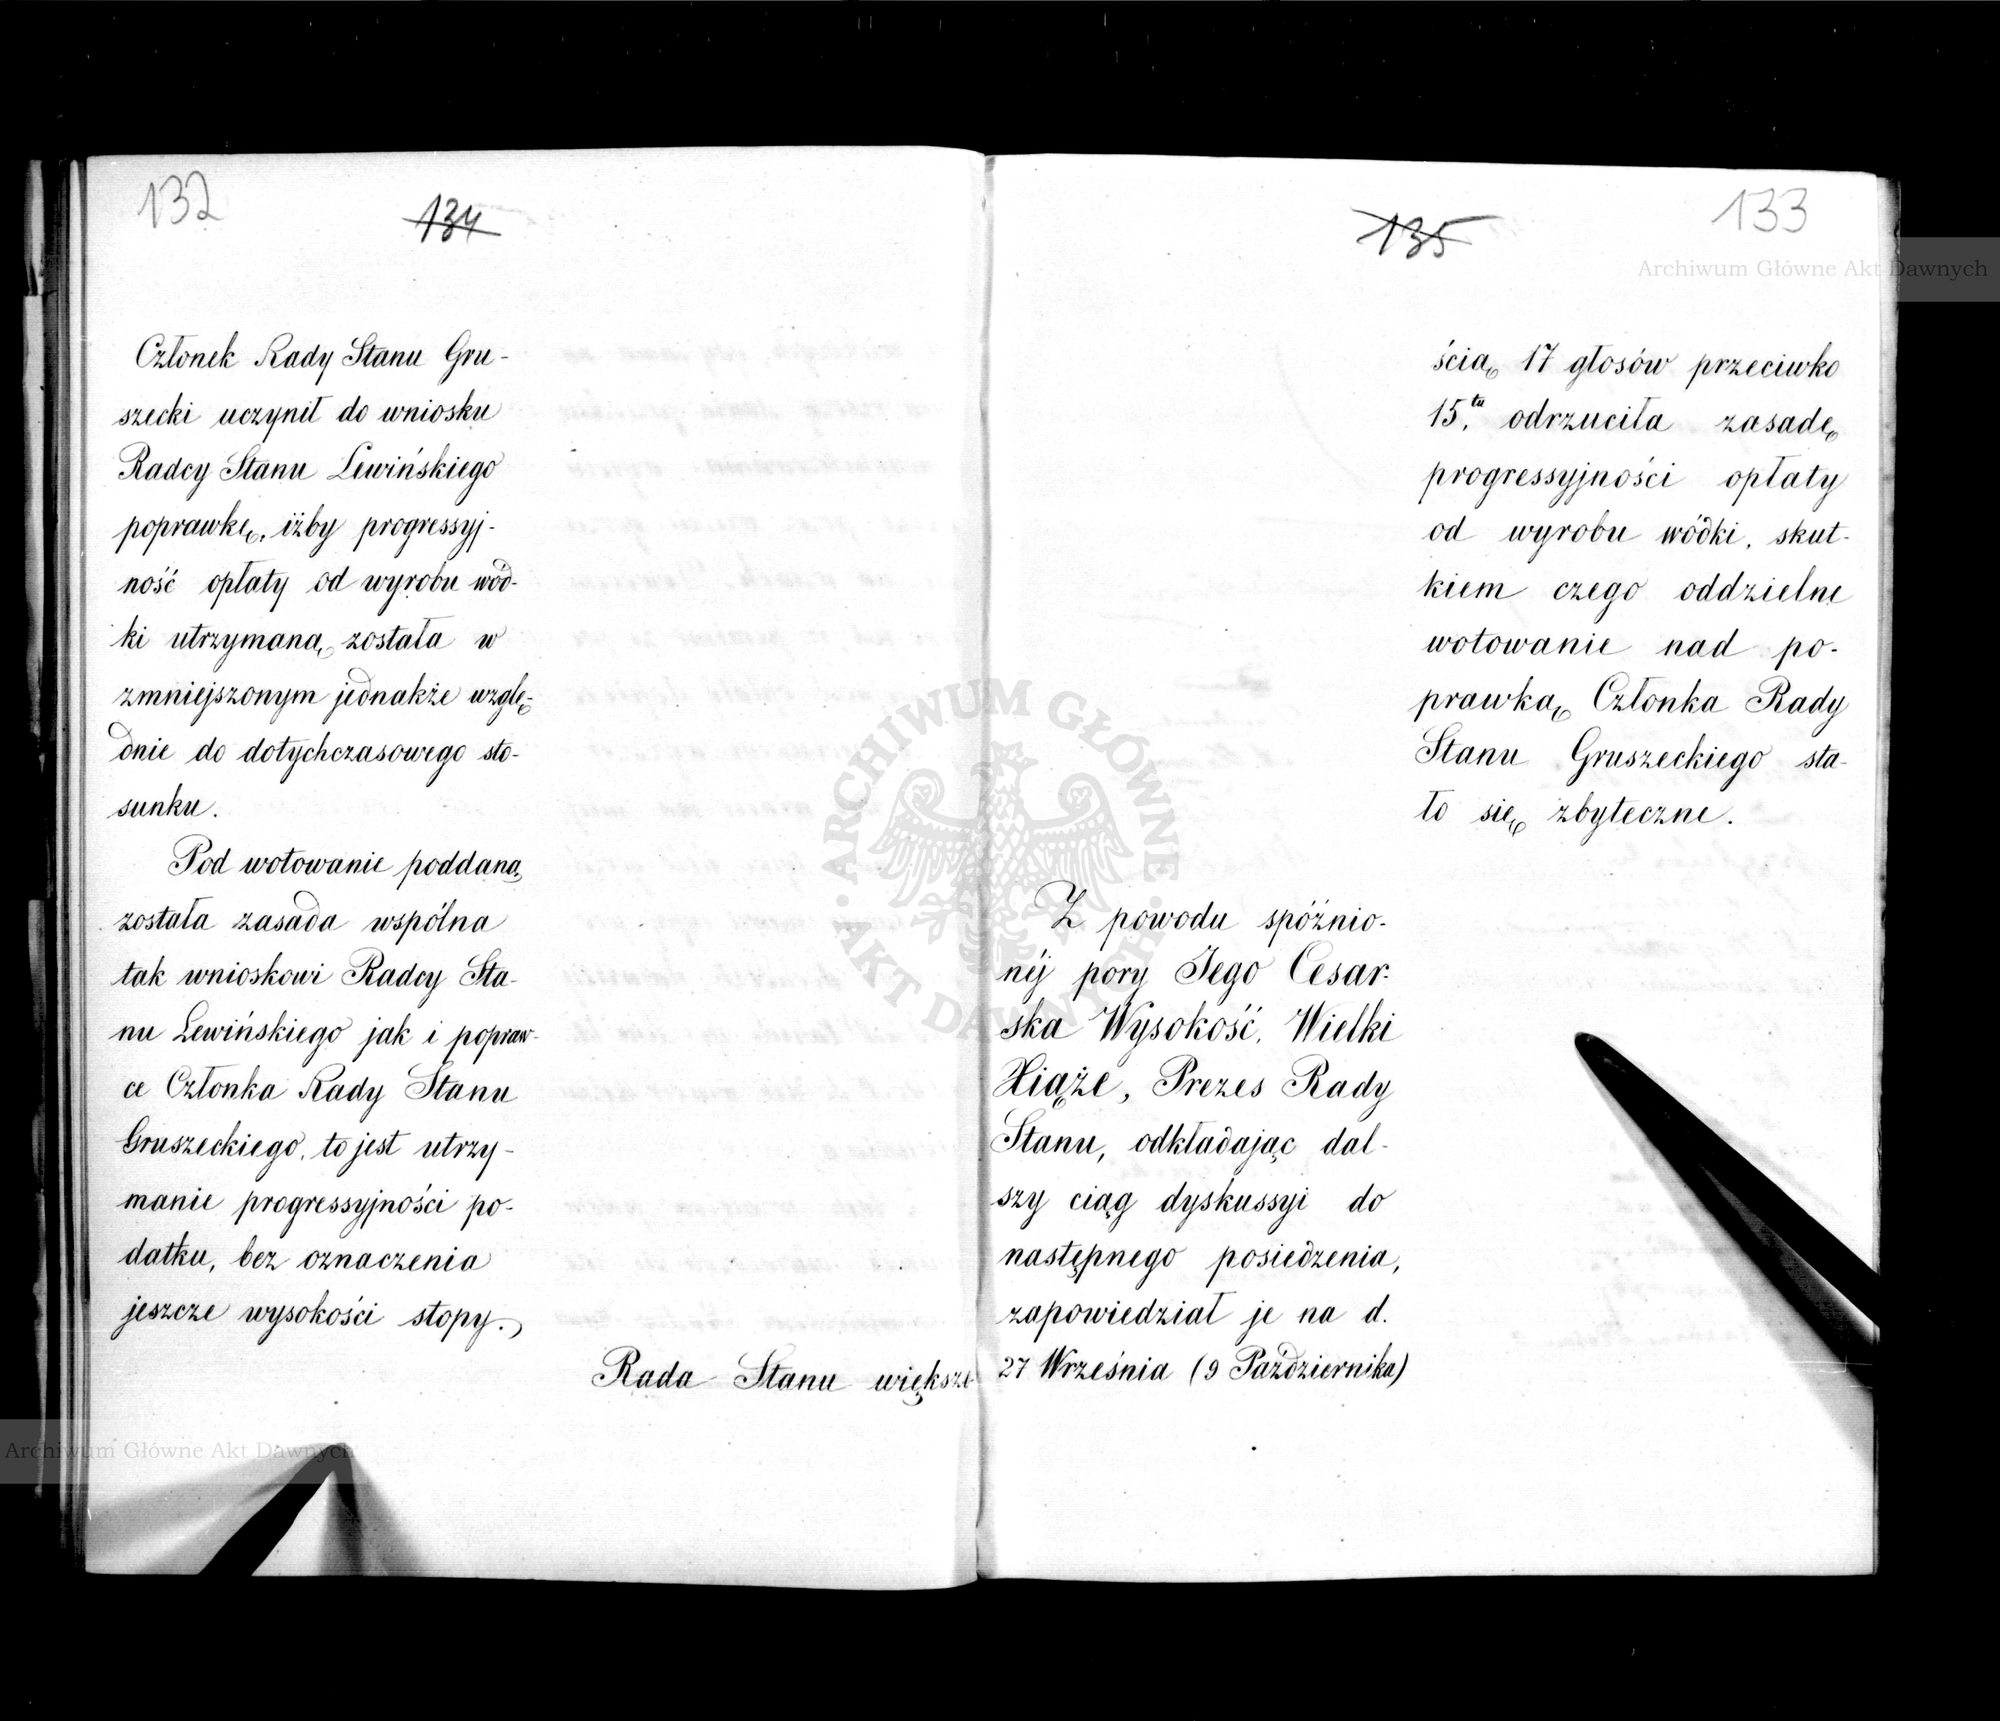 132
134
Członek Rady Stanu Gru-
szecki uczynił do wniosku
Radcy Stanu Lewińskiego
poprawkę, iżby progressyj-
ność opłaty od wyrobu wód-
ki utrzymaną została w
zmniejszonym jednakże wzglę-
dnie do dotychczasowego sto-
sunku.
Pod wotowanie poddaną
została zasada wspólna
tak wnioskowi Radcy Sta-
nu Lewińskiego jak i popraw-
ce Członka Rady Stanu
Gruszeckiego, to jest utrzy-
manie progressyjności po-
datku, bez oznaczenia
jeszcze wysokości stopy.
Rada Stanu większo-
135
133
ścią 17 głosów przeciwko
15.tu odrzuciła zasadę
progressyjności opłaty
od wyrobu wódki, skut-
kiem czego oddzielne
wotowanie nad po-
prawką Członka Rady
Stanu Gruszeckiego sta-
ło się zbyteczne.
Z powodu spóźnio-
néj pory Jego Cesar-
ska Wysokość, Wielki
Xiąże, Prezes Rady
Stanu, odkładając dal-
szy ciąg dyskussyi do
następnego posiedzenia,
zapowiedział je na d.
27 Września (9 Października)
Archiwum Główne Akt Dawnych
ARCHIWUM GŁÓWNE AKT DAWNYCH
Archiwum Główne Akt Dawnych